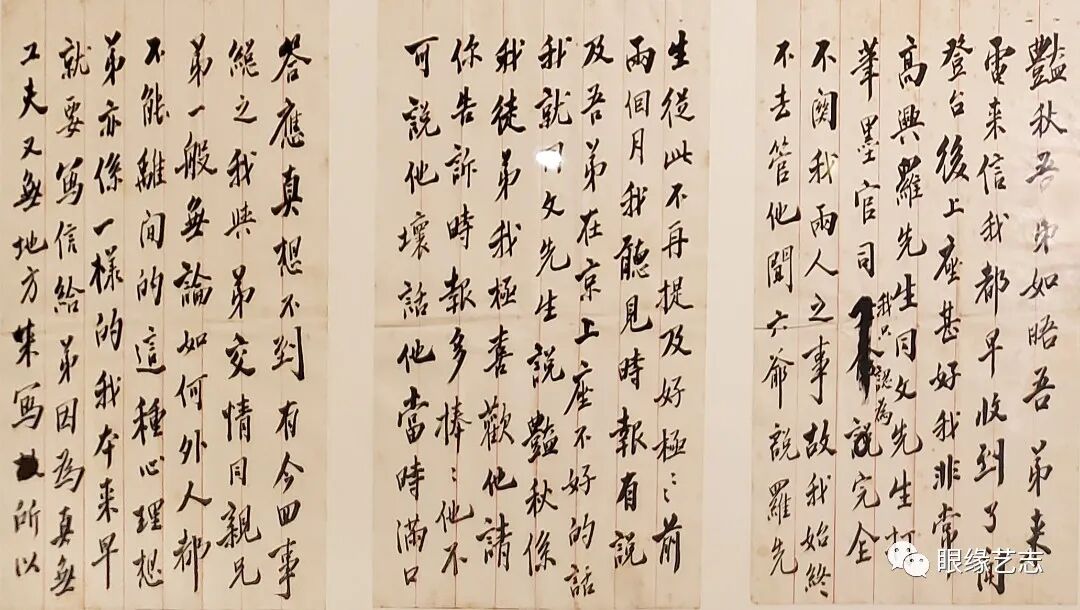 豔秋吾弟如晤吾弟来
電来信我都早收到了聞
登台後上座甚好我非常
高興羅先生同文先生打
筆墨官司我只認為説完全
不関我兩人之事故我始終
不去管他聞六爺説羅先
生從此不再提及好極〻前
兩個月我聽見時報有説
及吾弟在京上座不好的話
我就同文先生説豔秋係
我徒弟我極喜歡他請
你告訴時報多捧〻他不
可説他壞話他當時滿口
答應真想不到有今囬事
總之我與弟交情同親兄
弟一般無論如何外人都
不能離间的這種心理想
弟亦係一樣的我本来早
就要寫信給弟因為真無
工夫又無地方来寫所以
眼缘艺志